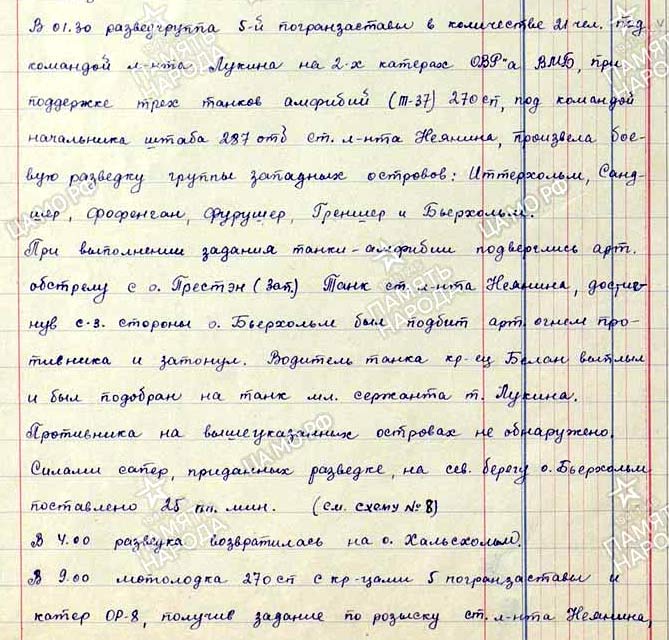 В 01.30 разведгруппа 5-й погранзаставы в количестве 21 чел. под
командой л-нта Лукина на 2-х катерах ОВР"а ВМБ, при
поддержке трех танков амфибий (Т-37) 270 сп, под командой
начальника штаба 287 отб ст. л-нта Неянина, произвела бое-
вую разведку группы западных островов: Иттерхольм, Санд-
шер, Фофенган, Фурушер, Греншер и Бьерхольм.
При выполнении задания танки-амфибии подверглись арт.
обстрелу с о. Престэн (зап.) Танк ст. л-нта Неянина, достиг-
нув с-з. стороны о. Бьерхольм был подбит арт. огнем про-
тивника и затонул. Водитель танка кр-ец Белан выплыл
и был подобран на танк мл. сержанта т. Лукина.
Противника на вышеуказанных островах не обнаружено.
Силами сапер, приданных разведке, на сев. берегу о. Бьерхольм
поставлено 25 пп. мин. (см. схему №8)
В 4.00 разведка возвратилась на о. Хальсхольм.
В 9.00 мотолодка 270 сп с кр-цами 5 погранзаставы и
катер ОР-8, получив задание по розыску ст. л-нта Неянина,
ПАМЯТЬ НАРОДА
ЦАМО РФ